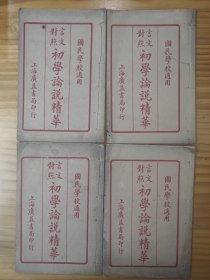 國民學校適用
言文對照 初學論說精華
上海廣益書局印行
國民學校適用
言文對照 初學論說精華
上海廣益書局印行
國民學校適用
言文對照 初學論說精華
上海廣益書局印行
國民學校適用
言文對照 初學論說精華
上海廣益書局印行